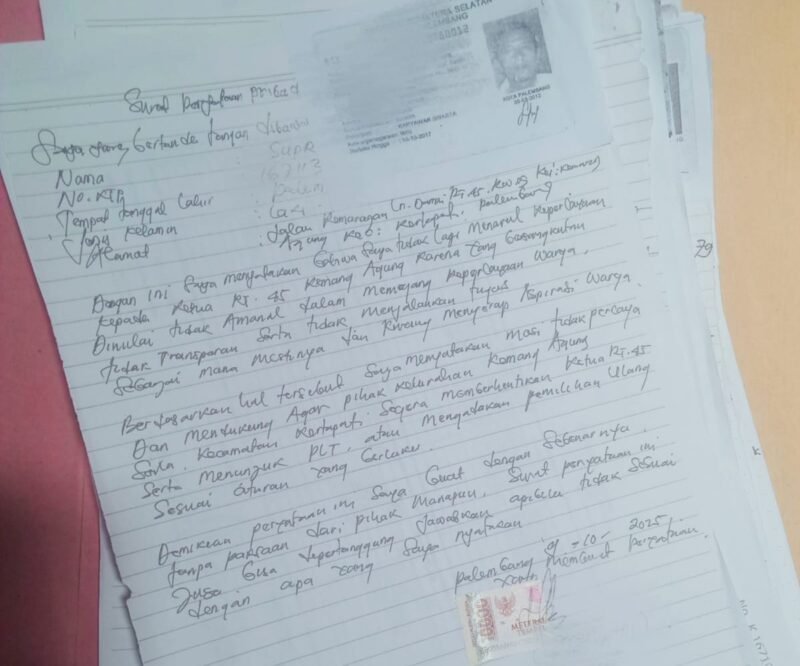 TERA SELATAN
LEMBANG
KARYAWAN SWASTA
KOTA PALEMBANG
Surat pernyataan pribad
Saya yang bertanda tangan dibawah
Nama : SUPR
No. KTP : 16711
Tempat tanggal Lahir : palem
Jenis kelamin : Laki
Alamat : Jalan Komarogan Ln. Damai. Rt. 45. Rw 09 Kel: Kemang
Agung Kec: Kertapati. palembang
Dengan ini Saya menyatakan bahwa Saya tidak lagi menaruh Kepercayaan
Kepada Ketua RT. 45 Kemang Agung Karena Yang bersangkutan
Dinilai tidak Amanah dalam memegang Kepercayaan Warga.
tidak Transparan Serta tidak menjalankan tugas
Sebagai mana mestinya dan Kurang menyerap Aspirasi Warga.
Berdasarkan hal tersebut Saya menyatakan mosi tidak percaya
Dan mendukung Agar pihak kelurahan Kemang Agung
Serta. Kecamatan Kertapati Segera memberhentikan Ketua Rt. 45
Serta menunjuk PLT, atau mengadakan pemilihan Ulang
Sesuai Aturan Yang berlaku.
Demikian pernyataan ini Saya buat dengan Sebenarnya.
tanpa paksaan dari pihak manapun. Surat pernyataan ini
Juga bisa dipertanggung jawabkan apibila tidak Sesuai
dengan apa yang Saya nyatakan
palembang 9 -10- 2025
Yang membuat pernyataan.
METERAI
TEMPEL